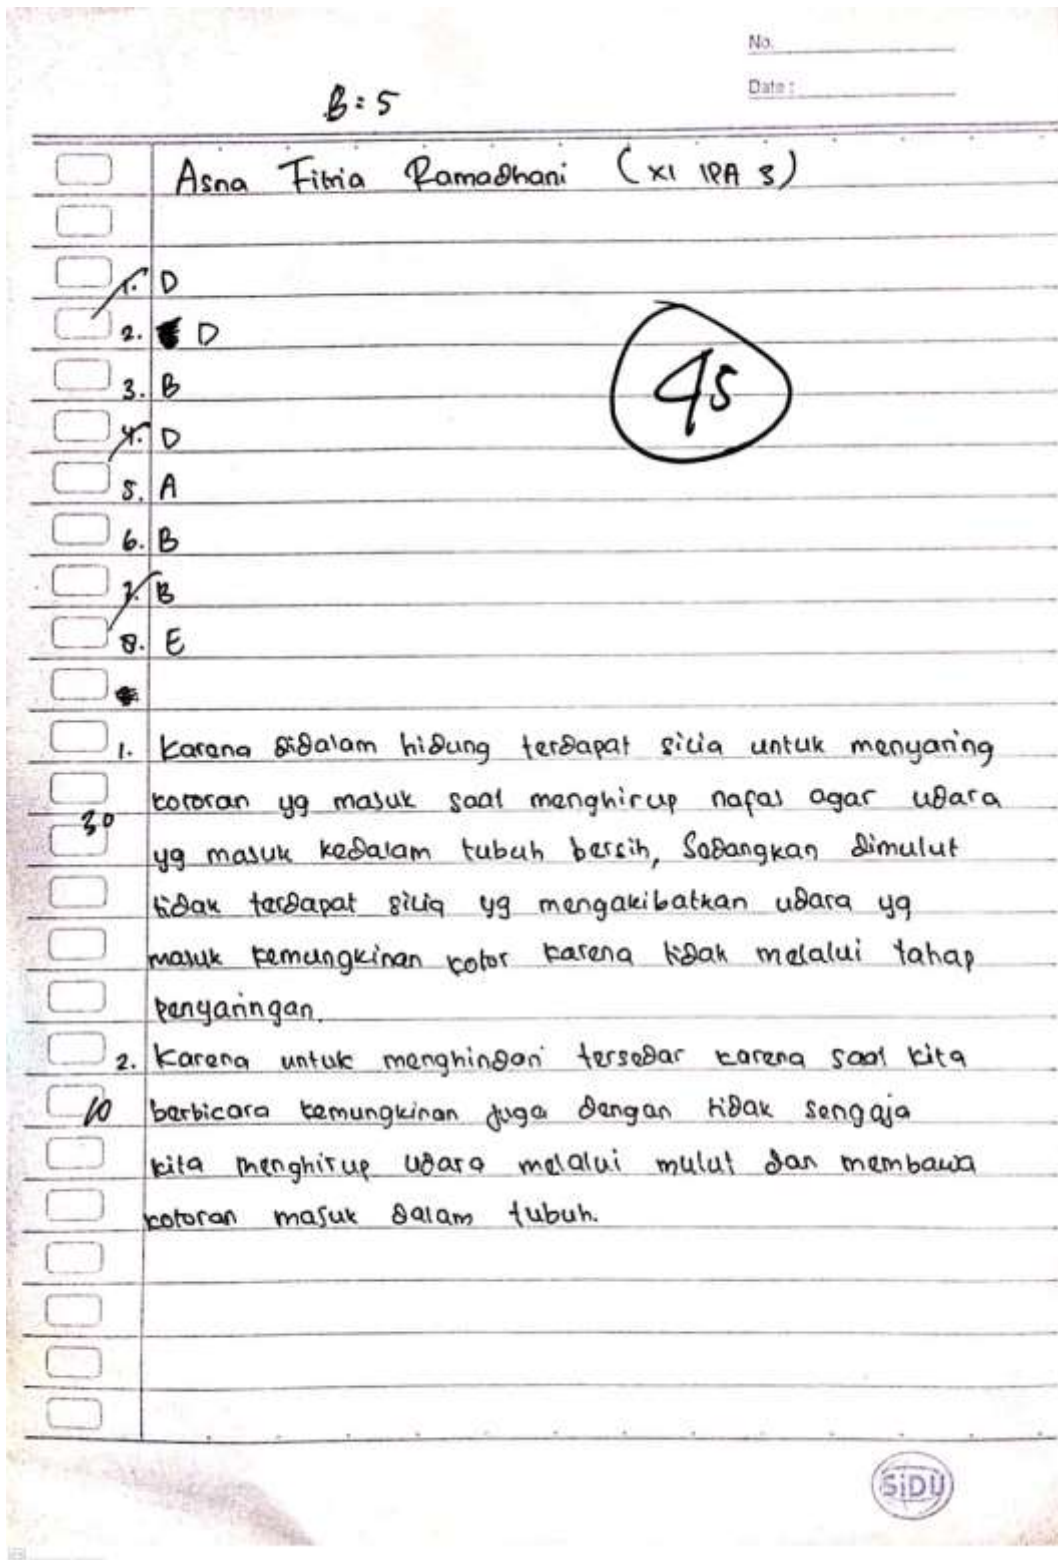 No.
Date :
B = 5
Asna Fitria Ramadhani (XI IPA 3)
1. D
2. D
3. B
4. D
45
5. A
6. B
7. B
8. E
1. Karena didalam hidung terdapat silia untuk menyaring
kotoran yg masuk saat menghirup nafas agar udara
30
yg masuk kedalam tubuh bersih, Sedangkan dimulut
tidak terdapat silia yg mengakibatkan udara yg
masuk kemungkinan kotor karena tidak melalui tahap
penyaringan.
2. Karena untuk menghindari tersedar karena saat kita
10 berbicara kemungkinan juga dengan tidak sengaja
kita menghirup udara melalui mulut dan membawa
kotoran masuk dalam tubuh.
SiDU